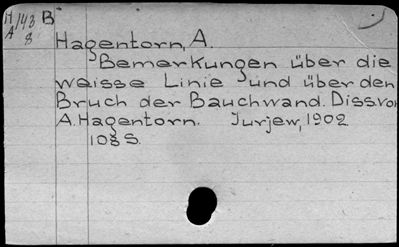 H/143 B
A 8
Hagentorn, A.
Bemerkungen über die
weisse Linie und über den
Bruch der Bauchwand. Diss.von
A. Hagentorn. Jurjew, 1902
108 S.